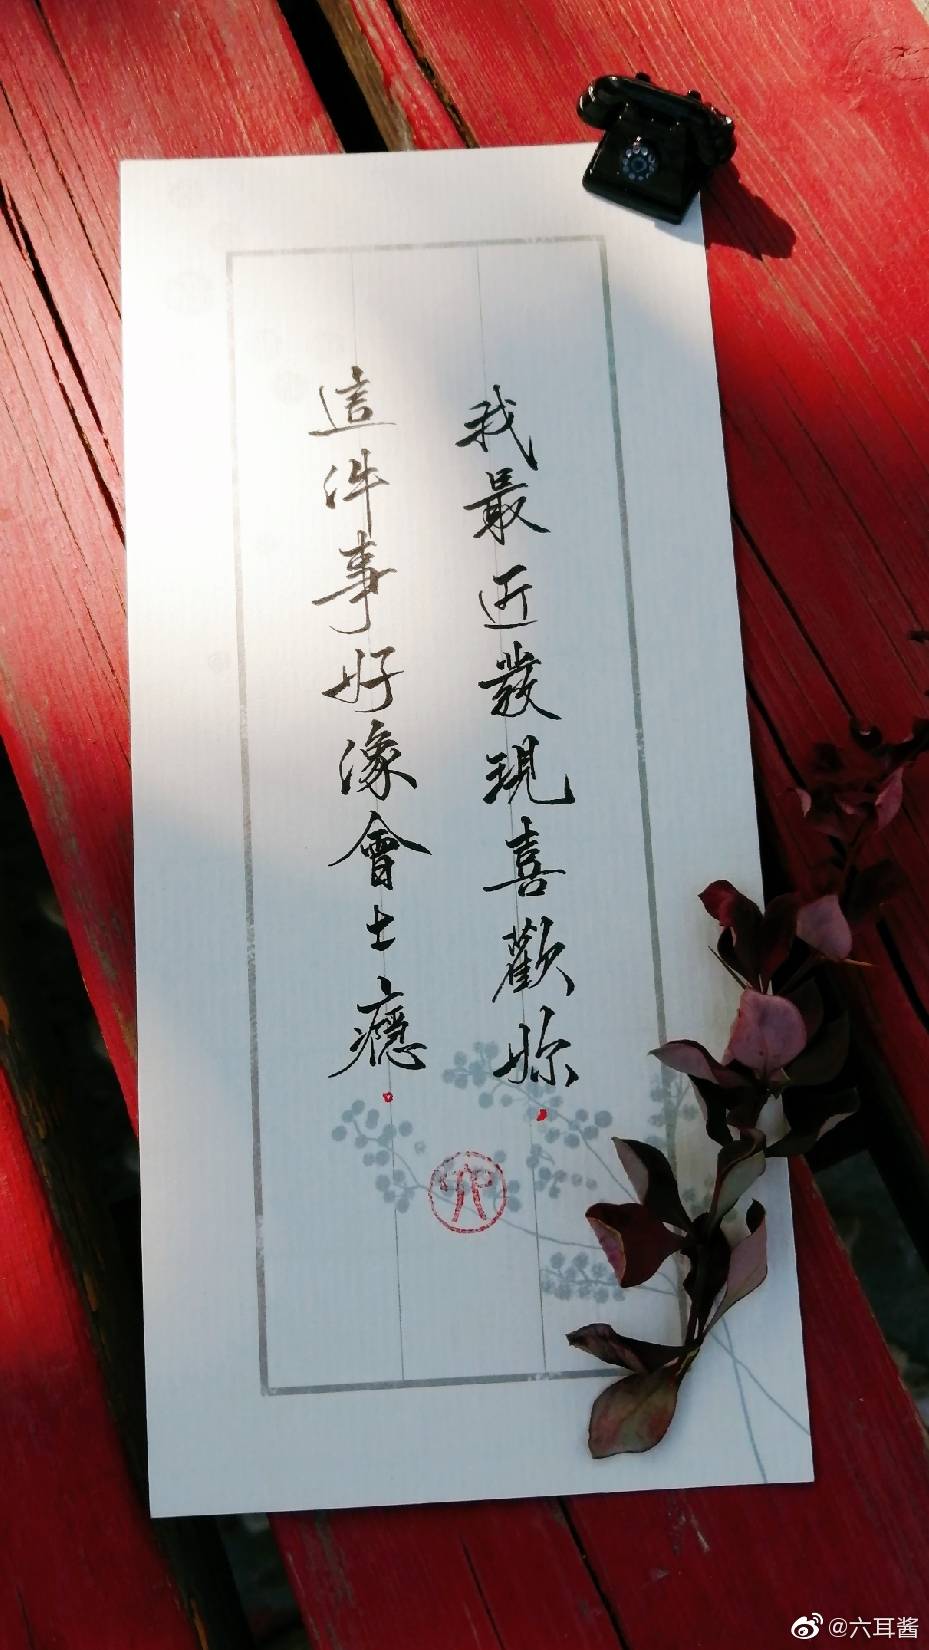 我最近發現喜歡妳
這件事好像會上癮
@六耳酱